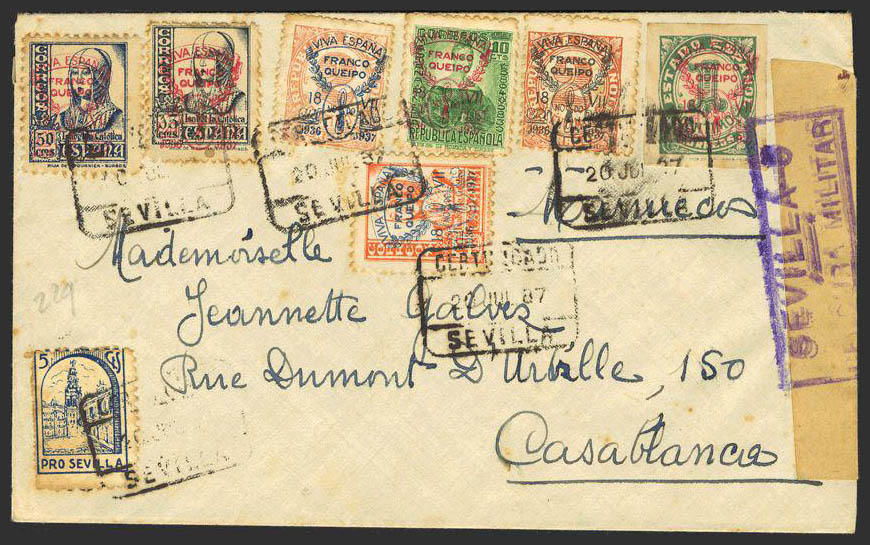 CORREOS
50 cms
Isabel la Católica
ESPAÑA
VIVA ESPAÑA
FRANCO
QUEIPO
CORREOS
Isabel la Católica
ESPAÑA
VIVA ESPAÑA
FRANCO
QUEIPO
18 VII
1936 1937
VIVA ESPAÑA
FRANCO
QUEIPO
REPUBLICA ESPAÑOLA
VIVA ESPAÑA
FRANCO
QUEIPO
18 VII
1936 1937
ESTADO ESPAÑOL
FRANCO
QUEIPO
VIVA ESPAÑA
FRANCO
QUEIPO
SEVILLA
20 JUL 37
SEVILLA
20 JUL 37
SEVILLA
CERTIFICADO
20 JUL 37
SEVILLA
Marruecos
Mademoiselle
Jeannette Galves
Rue Dumont D'Urville, 150
Casablanca
229
5 CS
PRO SEVILLA
SEVILLA
SEVILLA
MILITAR